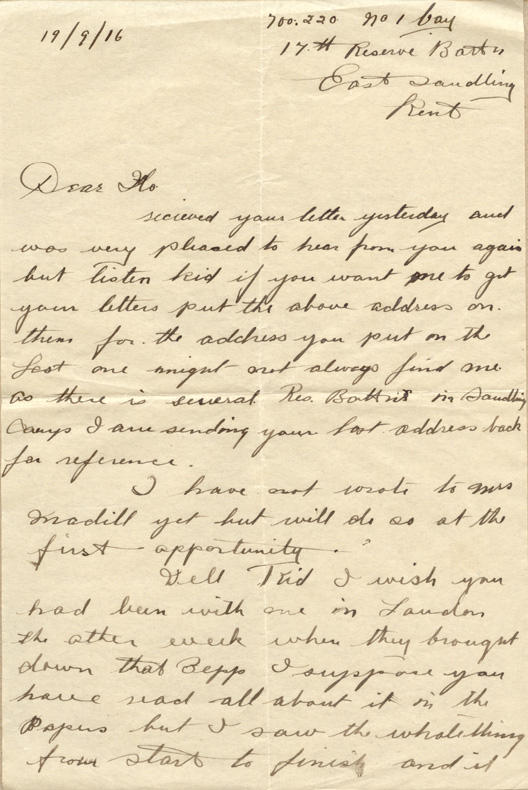 19/9/16
700.220 No 1 bay
17.th Reserve Battn
East Sandling
Kent
Dear Flo
recieved your letter yesterday and
was very pleased to hear from you again
but listen kid if you want me to get
your letters put the above address on.
them for. the address you put on the
last one might not always find me
as there is several Res. Battn's in Sandling
Camp I am sending your last address back
for reference.
I have not wrote to Mrs
Madill yet but will do so at the
first opportunity.
Well Kid I wish you
had been with me in London
the other week when they brought
down that Zepp I suppose you
have read all about it in the
Papers but I saw the whole thing
from start to finish and it